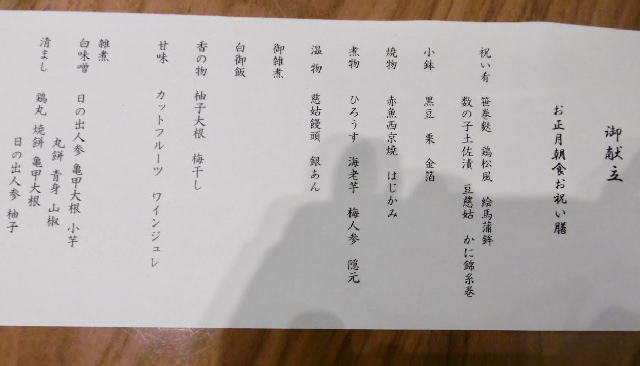 御献立
お正月朝食お祝い膳
祝い肴 笹巻麩 鶏松風 絵馬蒲鉾
数の子土佐漬 豆慈姑 かに錦糸巻
小鉢 黒豆 栗 金箔
焼物 赤魚西京焼 はじかみ
煮物 ひろうす 海老芋 梅人参 隠元
温物 慈姑饅頭 銀あん
御雑煮
白御飯
香の物 柚子大根 梅干し
甘味 カットフルーツ ワインジュレ
雑煮
白味噌 日の出人参 亀甲大根 小芋
丸餅 青身 山椒
清まし 鶏丸 焼餅 亀甲大根
日の出人参 柚子